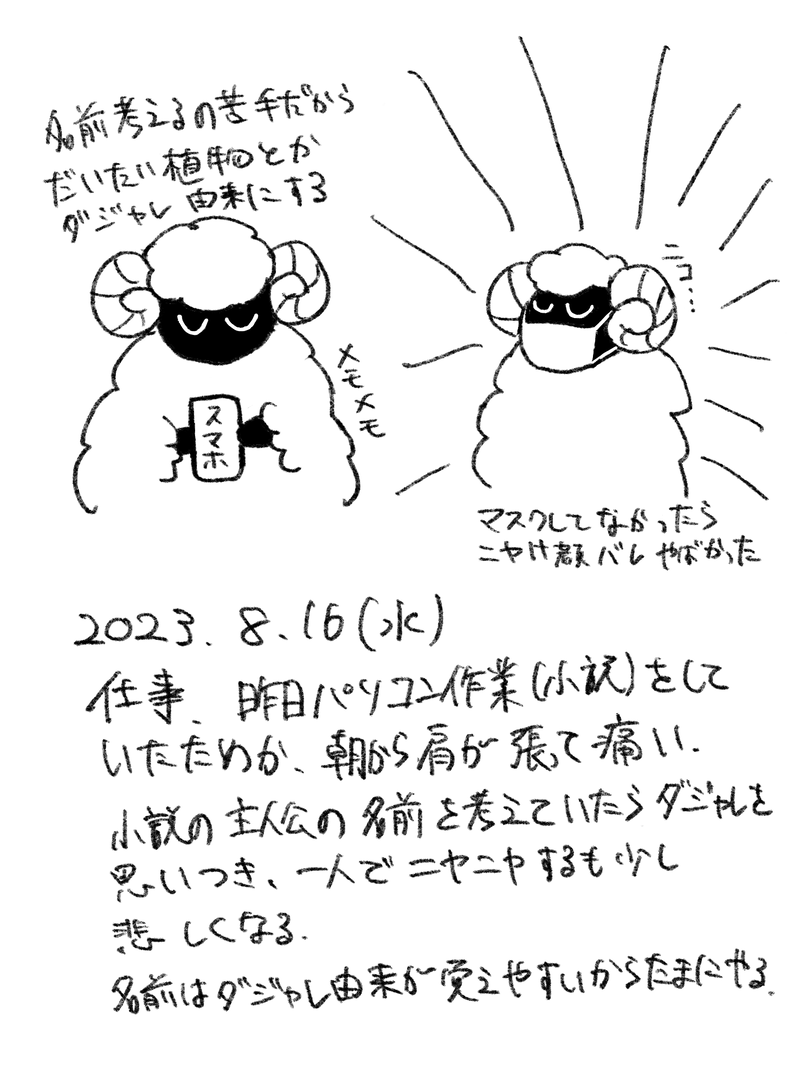 名前考えるの苦手だから
だいたい植物とか
ダジャレ由来にする
メモメモ
スマホ
ニコ…
マスクしてなかったら
ニヤけ顔バレやばかった
2023.8.16(水)
仕事、昨日パソコン作業(小説)をして
いたためか、朝から肩が張って痛い.
小説の主人公の名前を考えていたらダジャレを
思いつき、一人でニヤニヤするも少し
悲しくなる.
名前はダジャレ由来が覚えやすいからたまにやる.